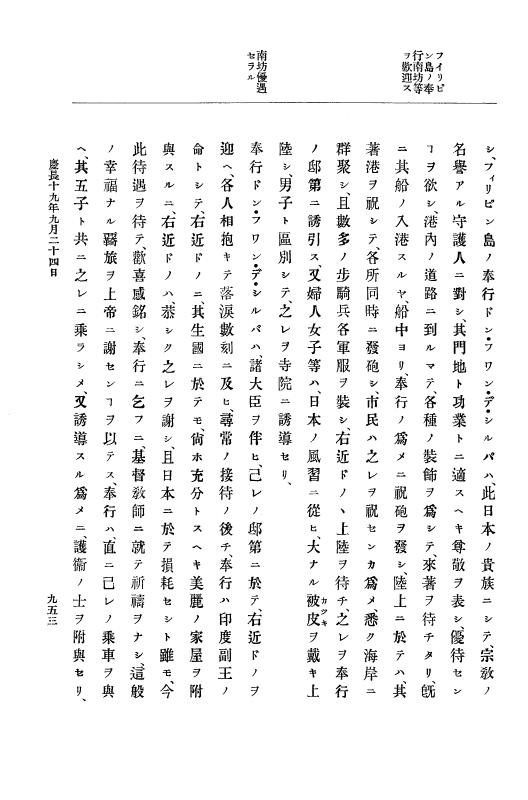 フイリピ
ン島ノ奉
行南坊等
ヲ歡迎ス
南坊優遇
セラル
シ、フィリピン島ノ奉行ドン・フワン・デ・シルバハ、此日本ノ貴族ニシテ、宗敎ノ
名譽アル守護人ニ對シ、其門地ト功業トニ適スヘキ尊敬ヲ表シ、優待セン
ヿヲ欲シ、港內ノ道路ニ到ルマテ、各種ノ裝飾ヲ爲シテ、來著ヲ待チタリ、旣
ニ其船ノ入港スルヤ、船中ヨリ、奉行ノ爲メニ祝砲ヲ發シ、陸上ニ於テハ、其
著港ヲ祝シテ、各所同時ニ發砲シ、市民ハ之レヲ祝センカ爲メ、悉ク海岸ニ
群聚シ、且數多ノ步騎兵各軍服ヲ裝シ、右近ドノヽ上陸ヲ待チ、之レヲ奉行
ノ邸第ニ誘引ス、又婦人女子等ハ、日本ノ風習ニ從ヒ、大ナル被皮カツキヲ戴キ上
陸シ、男子ト區別シテ、之レヲ寺院ニ誘導セリ、
奉行ドン・フワン・デ・シルバハ、諸大臣ヲ伴ヒ、己レノ邸第ニ於テ、右近ドノヲ
迎ヘ、各人相抱キテ落淚數刻ニ及ヒ、尋常ノ接待ノ後チ、奉行ハ印度副王ノ
命トシテ、右近ドノニ、其生國ニ於テモ、尙ホ充分トスヘキ美麗ノ家屋ヲ附
與スルニ、右近ドノハ、恭シク之レヲ謝シ、且日本ニ於テ損耗セシト雖モ、今
此待遇ヲ待テ、歡喜感銘シ、奉行ニ乞フニ、基督敎師ニ就テ祈禱ヲナシ、這般
ノ幸福ナル羇旅ヲ上帝ニ謝センヿヲ以テス、奉行ハ、直ニ己レノ乘車ヲ與
ヘ、其五子ト共ニ之レニ乘ラシメ、又誘導スル爲メニ、護衞ノ士ヲ附與セリ、
慶長十九年九月二十四日
九五三